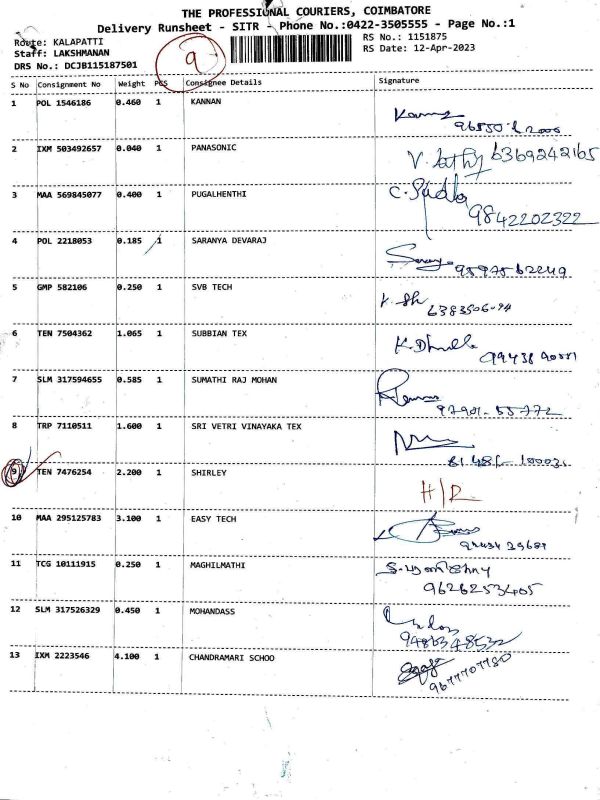 THE PROFESSIONAL COURIERS, COIMBATORE
Delivery Runsheet - SITR - Phone No.:0422-3505555 - Page No.:1
Route: KALAPATTI
Staff: LAKSHMANAN
DRS No.: DCJB115187501
9
RS No.: 1151875
RS Date: 12-Apr-2023
S No Consignment No Weight PCS Consignee Details Signature
1 POL 1546186 0.460 1 KANNAN
2 IXM 503492657 0.040 1 PANASONIC 6369242165
3 MAA 569845077 0.400 1 PUGALHENTHI
9842202322
4 POL 2218053 0.185 1 SARANYA DEVARAJ
5 GMP 582106 0.250 1 SVB TECH
6 TEN 7504362 1.065 1 SUBBIAN TEX
7 SLM 317594655 0.585 1 SUMATHI RAJ MOHAN
97901-55772
8 TRP 7110511 1.600 1 SRI VETRI VINAYAKA TEX
9 TEN 7476254 2.200 1 SHIRLEY
10 MAA 295125783 3.100 1 EASY TECH
11 TCG 10111915 0.250 1 MAGHILMATHI
9626253405
12 SLM 317526329 0.450 1 MOHANDASS
9486348532
13 IXM 2223546 4.100 1 CHANDRAMARI SCHOO
9677707780